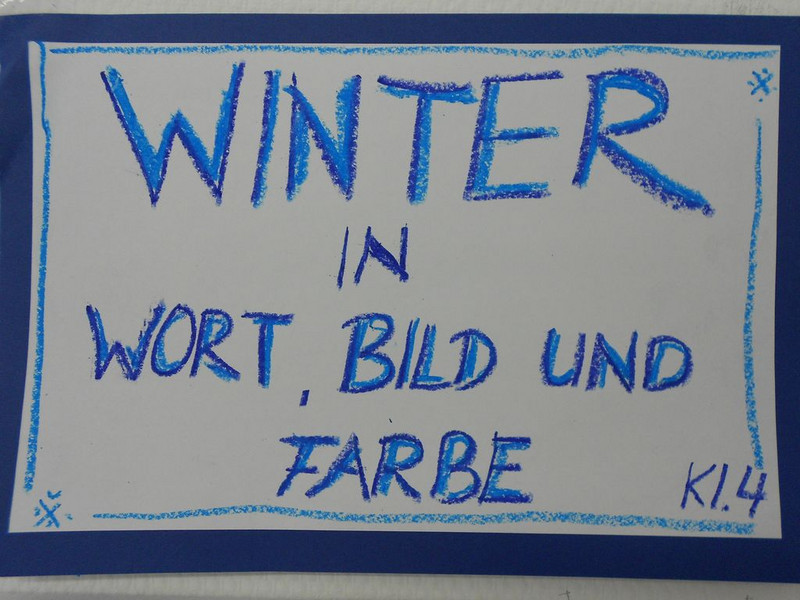 WINTER
IN
WORT, BILD UND
FARBE
Kl.4